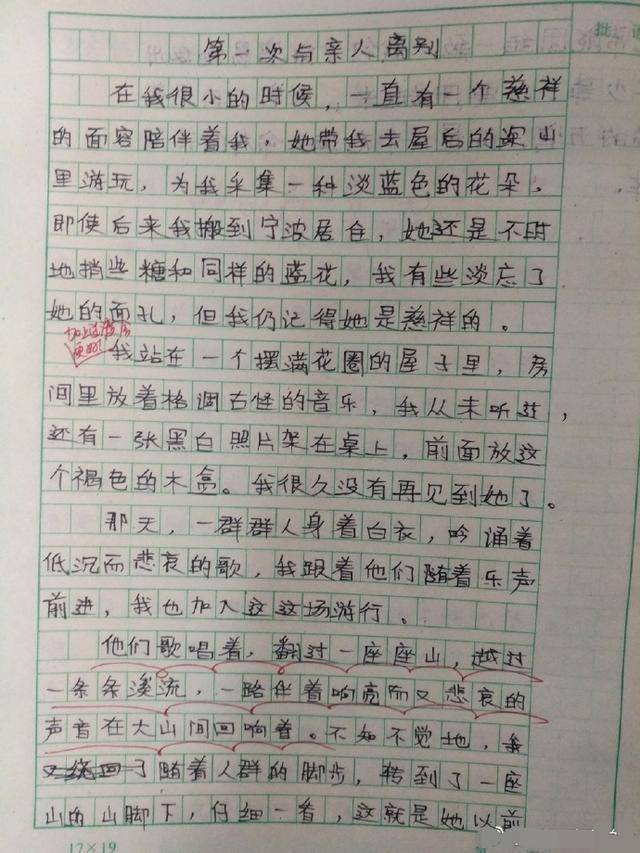 第一次与亲人离别
在我很小的时候，一直有一个慈祥
的面容陪伴着我，她带我去屋后的深山
里游玩，为我采集一种淡蓝色的花朵，
即使后来我搬到宁波居住，她还是不时
地捎些糖和同样的蓝花，我有些淡忘了
她的面孔，但我仍记得她是慈祥的。
加上过渡句
更好
我站在一个摆满花圈的屋子里，房
间里放着格调古怪的音乐，我从未听过，
还有一张黑白照片架在桌上，前面放这
个褐色的木盒。我很久没有再见到她了。
那天，一群群人身着白衣，吟诵着
低沉而悲哀的歌，我跟着他们随着乐声
前进，我也加入这这场游行。
他们歌唱着，翻过一座座山，越过
一条条溪流，一路伴着响亮而又悲哀的
声音在大山间回响着。不知不觉地，我
了随着人群的脚步，转到了一座
山的山脚下，仔细一看，这就是她以前
17×19